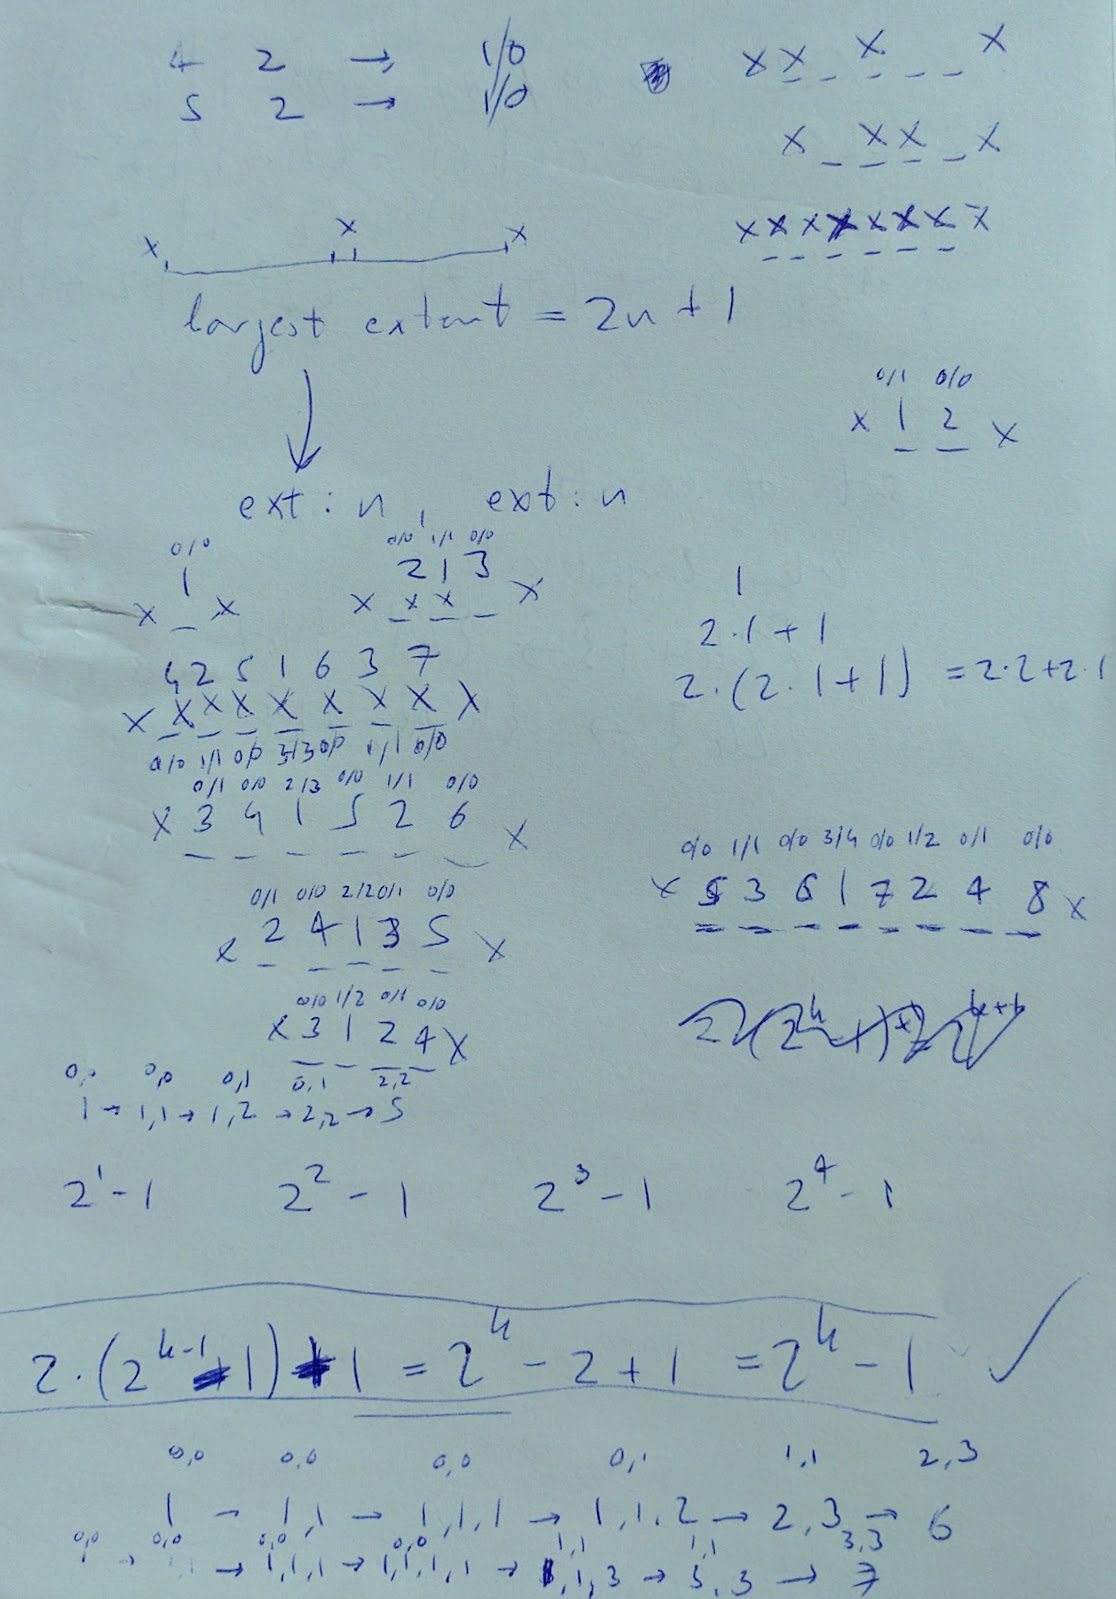 4 2 → 1/0
5 2 → 1/0
x x x x
x x x x
x x x x x x x x
x x x
largest extent = 2n + 1
0/1 0/0
x 1 2 x
ext: n, ext: n
0/0
1
x x
0/0 1/1 0/0
2 1 3
x x x x
1
2·1 + 1
2·(2·1+1) = 2·2+2·1
4 2 5 1 6 3 7
x x x x x x x x x
0/0 1/1 0/0 3/3 0/0 1/1 0/0
0/1 0/0 2/3 0/0 1/1 0/0
x 3 4 1 5 2 6 x
0/0 1/1 0/0 3/4 0/0 1/2 0/1 0/0
x 5 3 6 1 7 2 4 8 x
0/1 0/0 2/2 0/1 0/0
x 2 4 1 3 5 x
0/0 1/2 0/1 0/0
x 3 1 2 4 x
0,0 0,0 0,1 0,1 2,2
1 → 1,1 → 1,2 → 2,2 → 5
2^1 - 1 2^2 - 1 2^3 - 1 2^4 - 1
2·(2^{k-1} - 1) + 1 = 2^k - 2 + 1 = 2^k - 1 ✓
0,0 0,0 0,0 0,1 1,1 2,3
1 → 1,1 → 1,1,1 → 1,1,2 → 2,3 → 6
0,0 0,0 0,0 0,0 1,1 1,1 3,3
→ 1,1,1 → 1,1,1,1 → 1,1,3 → 3,3 → 7